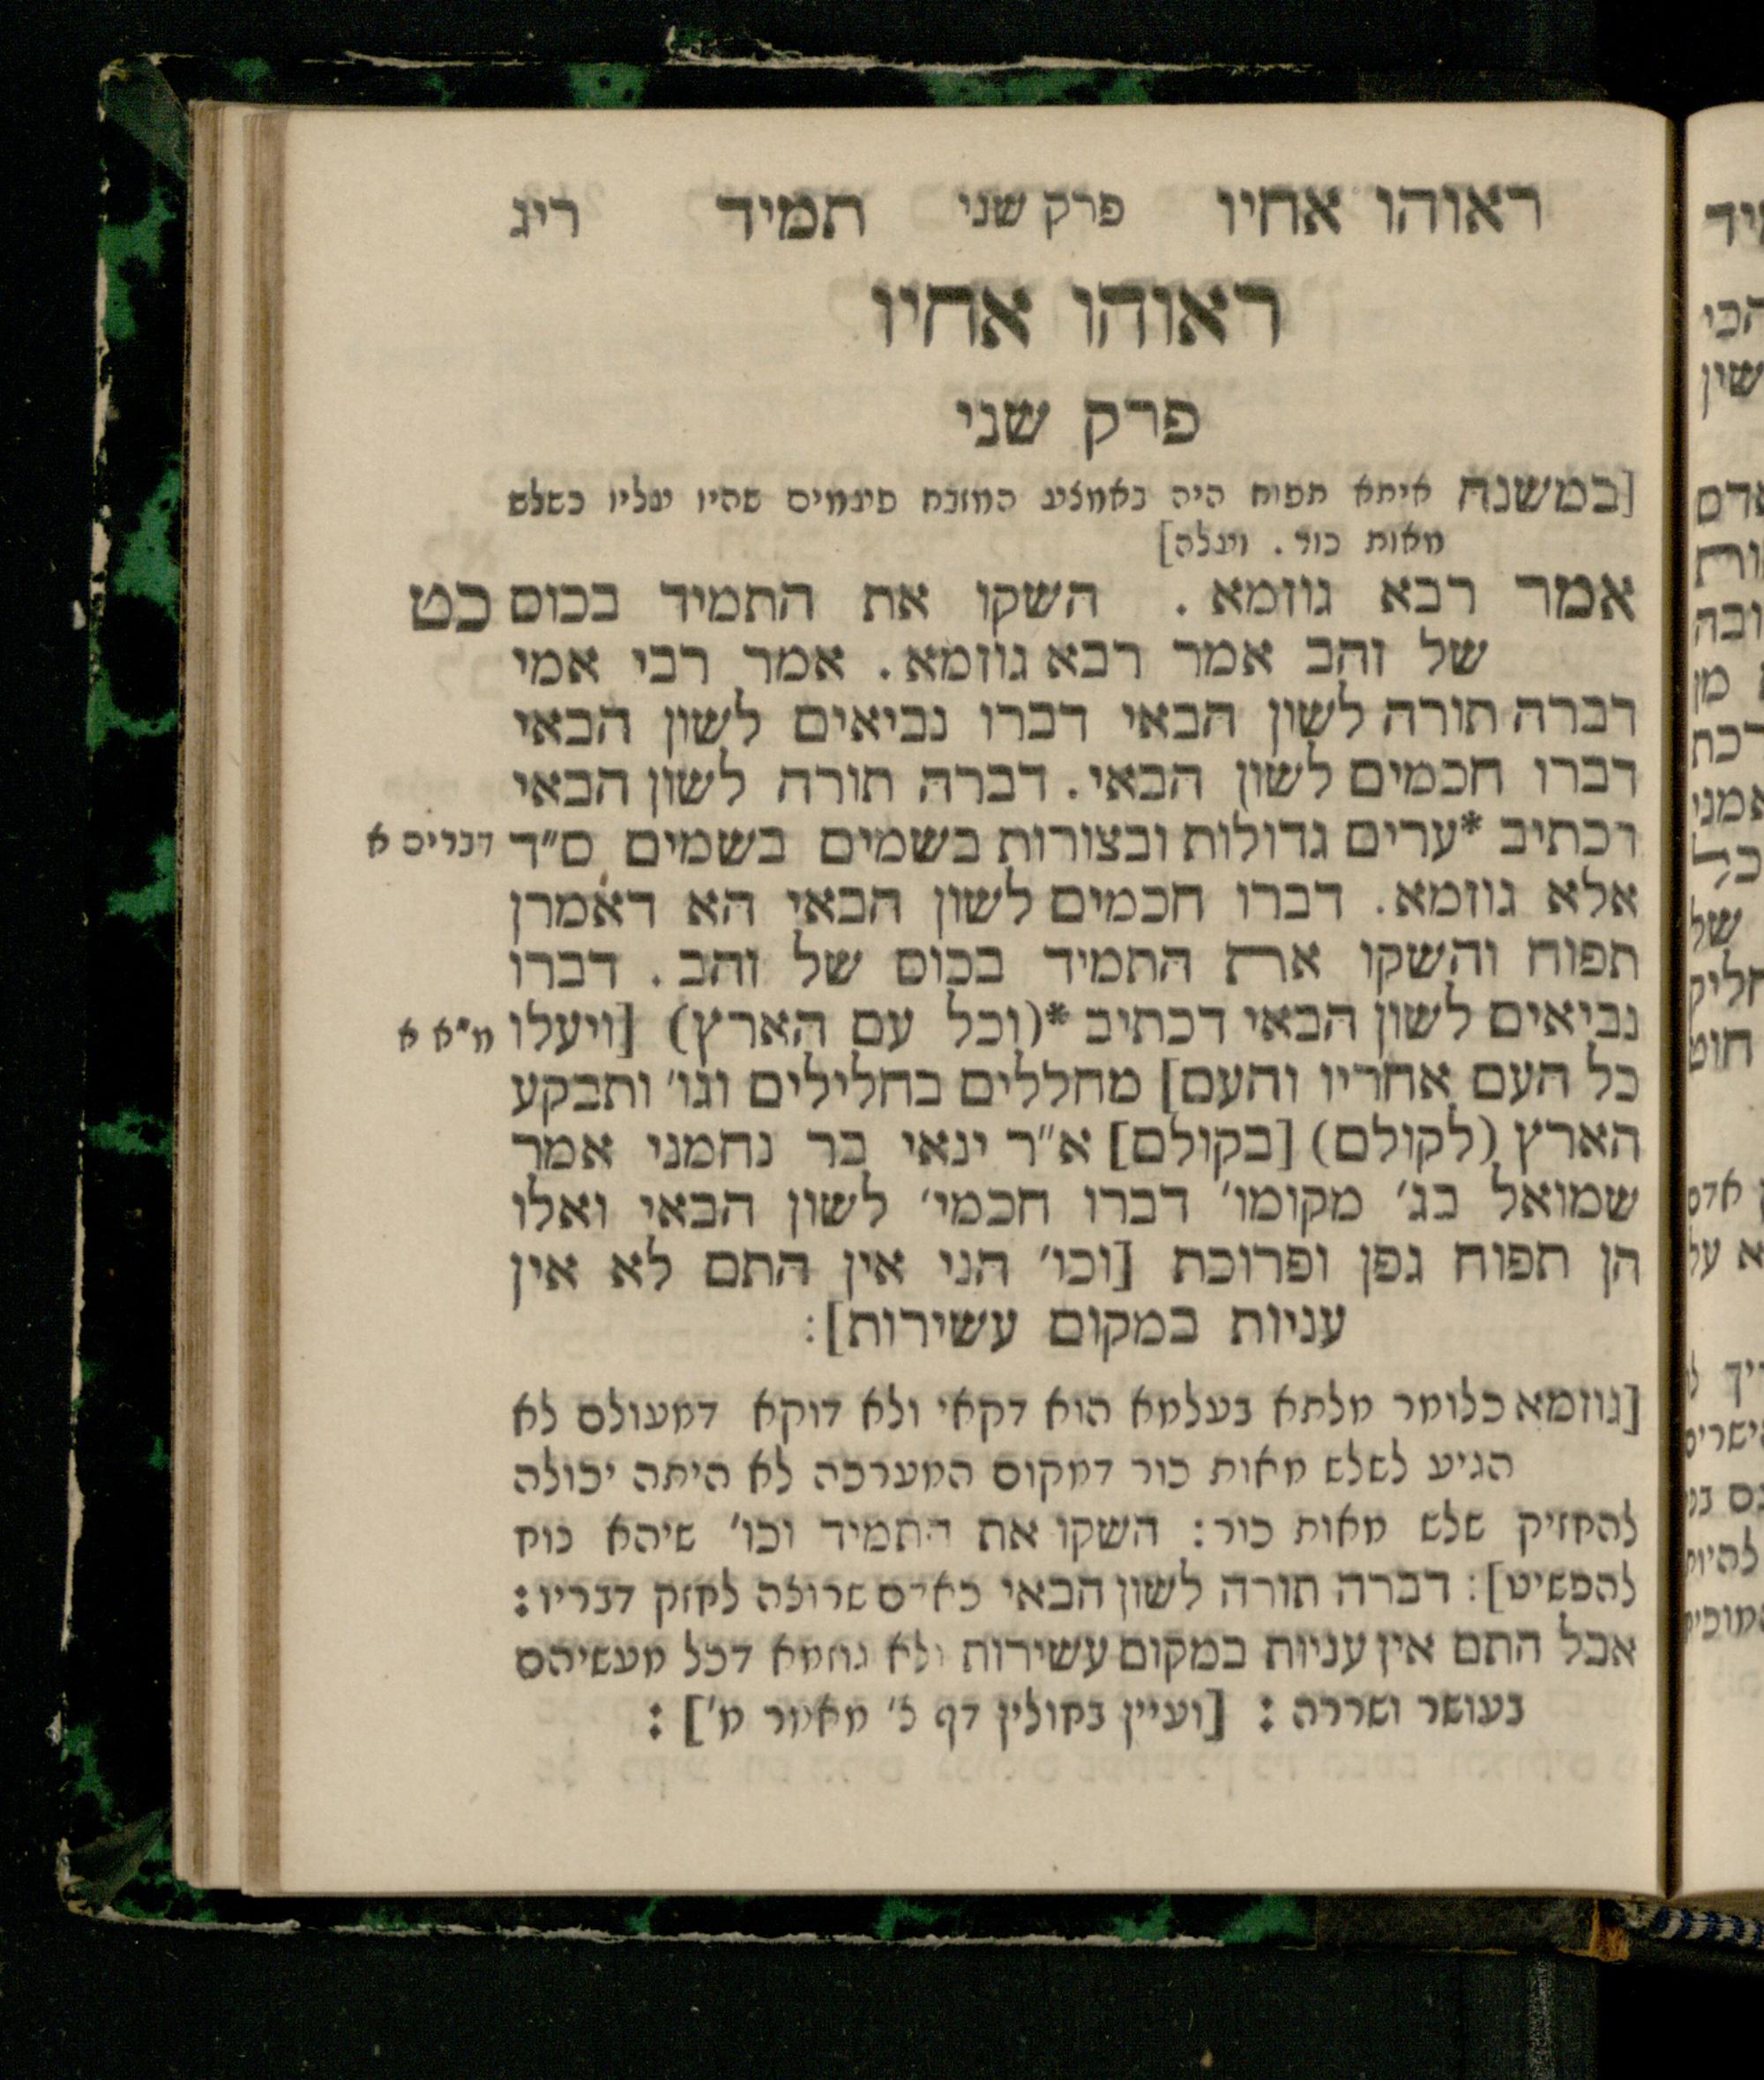 ראוהו אחיו פרק שני תמיד ריג
ראוהו אחיו
פרק שני
[במשנה איתא תפוח היה באמצע המזבח פעמים שהיו עליו כשלש
מאות כור. ועלה]
אמר רבא גוזמא. השקו את התמיד בכוס כט
של זהב אמר רבא גוזמא. אמר רבי אמי
דברה תורה לשון הבאי דברו נביאים לשון הבאי
דברו חכמים לשון הבאי. דברה תורה לשון הבאי
דכתיב *ערים גדולות ובצורות בשמים בשמים ס"ד דברים א
אלא גוזמא. דברו חכמים לשון הבאי הא דאמרן
תפוח והשקו את התמיד בכוס של זהב. דברו
נביאים לשון הבאי דכתיב *(וכל עם הארץ) [ויעלו מ"א א
כל העם אחריו והעם] מחללים בחלילים וגו' ותבקע
הארץ (לקולם) [בקולם] א"ר ינאי בר נחמני אמר
שמואל בג' מקומו' דברו חכמי' לשון הבאי ואלו
הן תפוח גפן ופרוכת [וכו' הני אין התם לא אין
עניות במקום עשירות]:
[גוזמא כלומר מלתא בעלמא הוא דקאי ולא דוקא דמעולם לא
הגיע לשלש מאות כור דמקום המערכה לא היתה יכולה
להחזיק שלש מאות כור: השקו את התמיד וכו' שיהא נוח
להפשיט]: דברה תורה לשון הבאי כאדם שרוצה לחזק דבריו:
אבל התם אין עניות במקום עשירות ולא גוזמא דכל מעשיהם
בעושר ושררה: [ועיין בחולין דף צ' מאמר מ']: